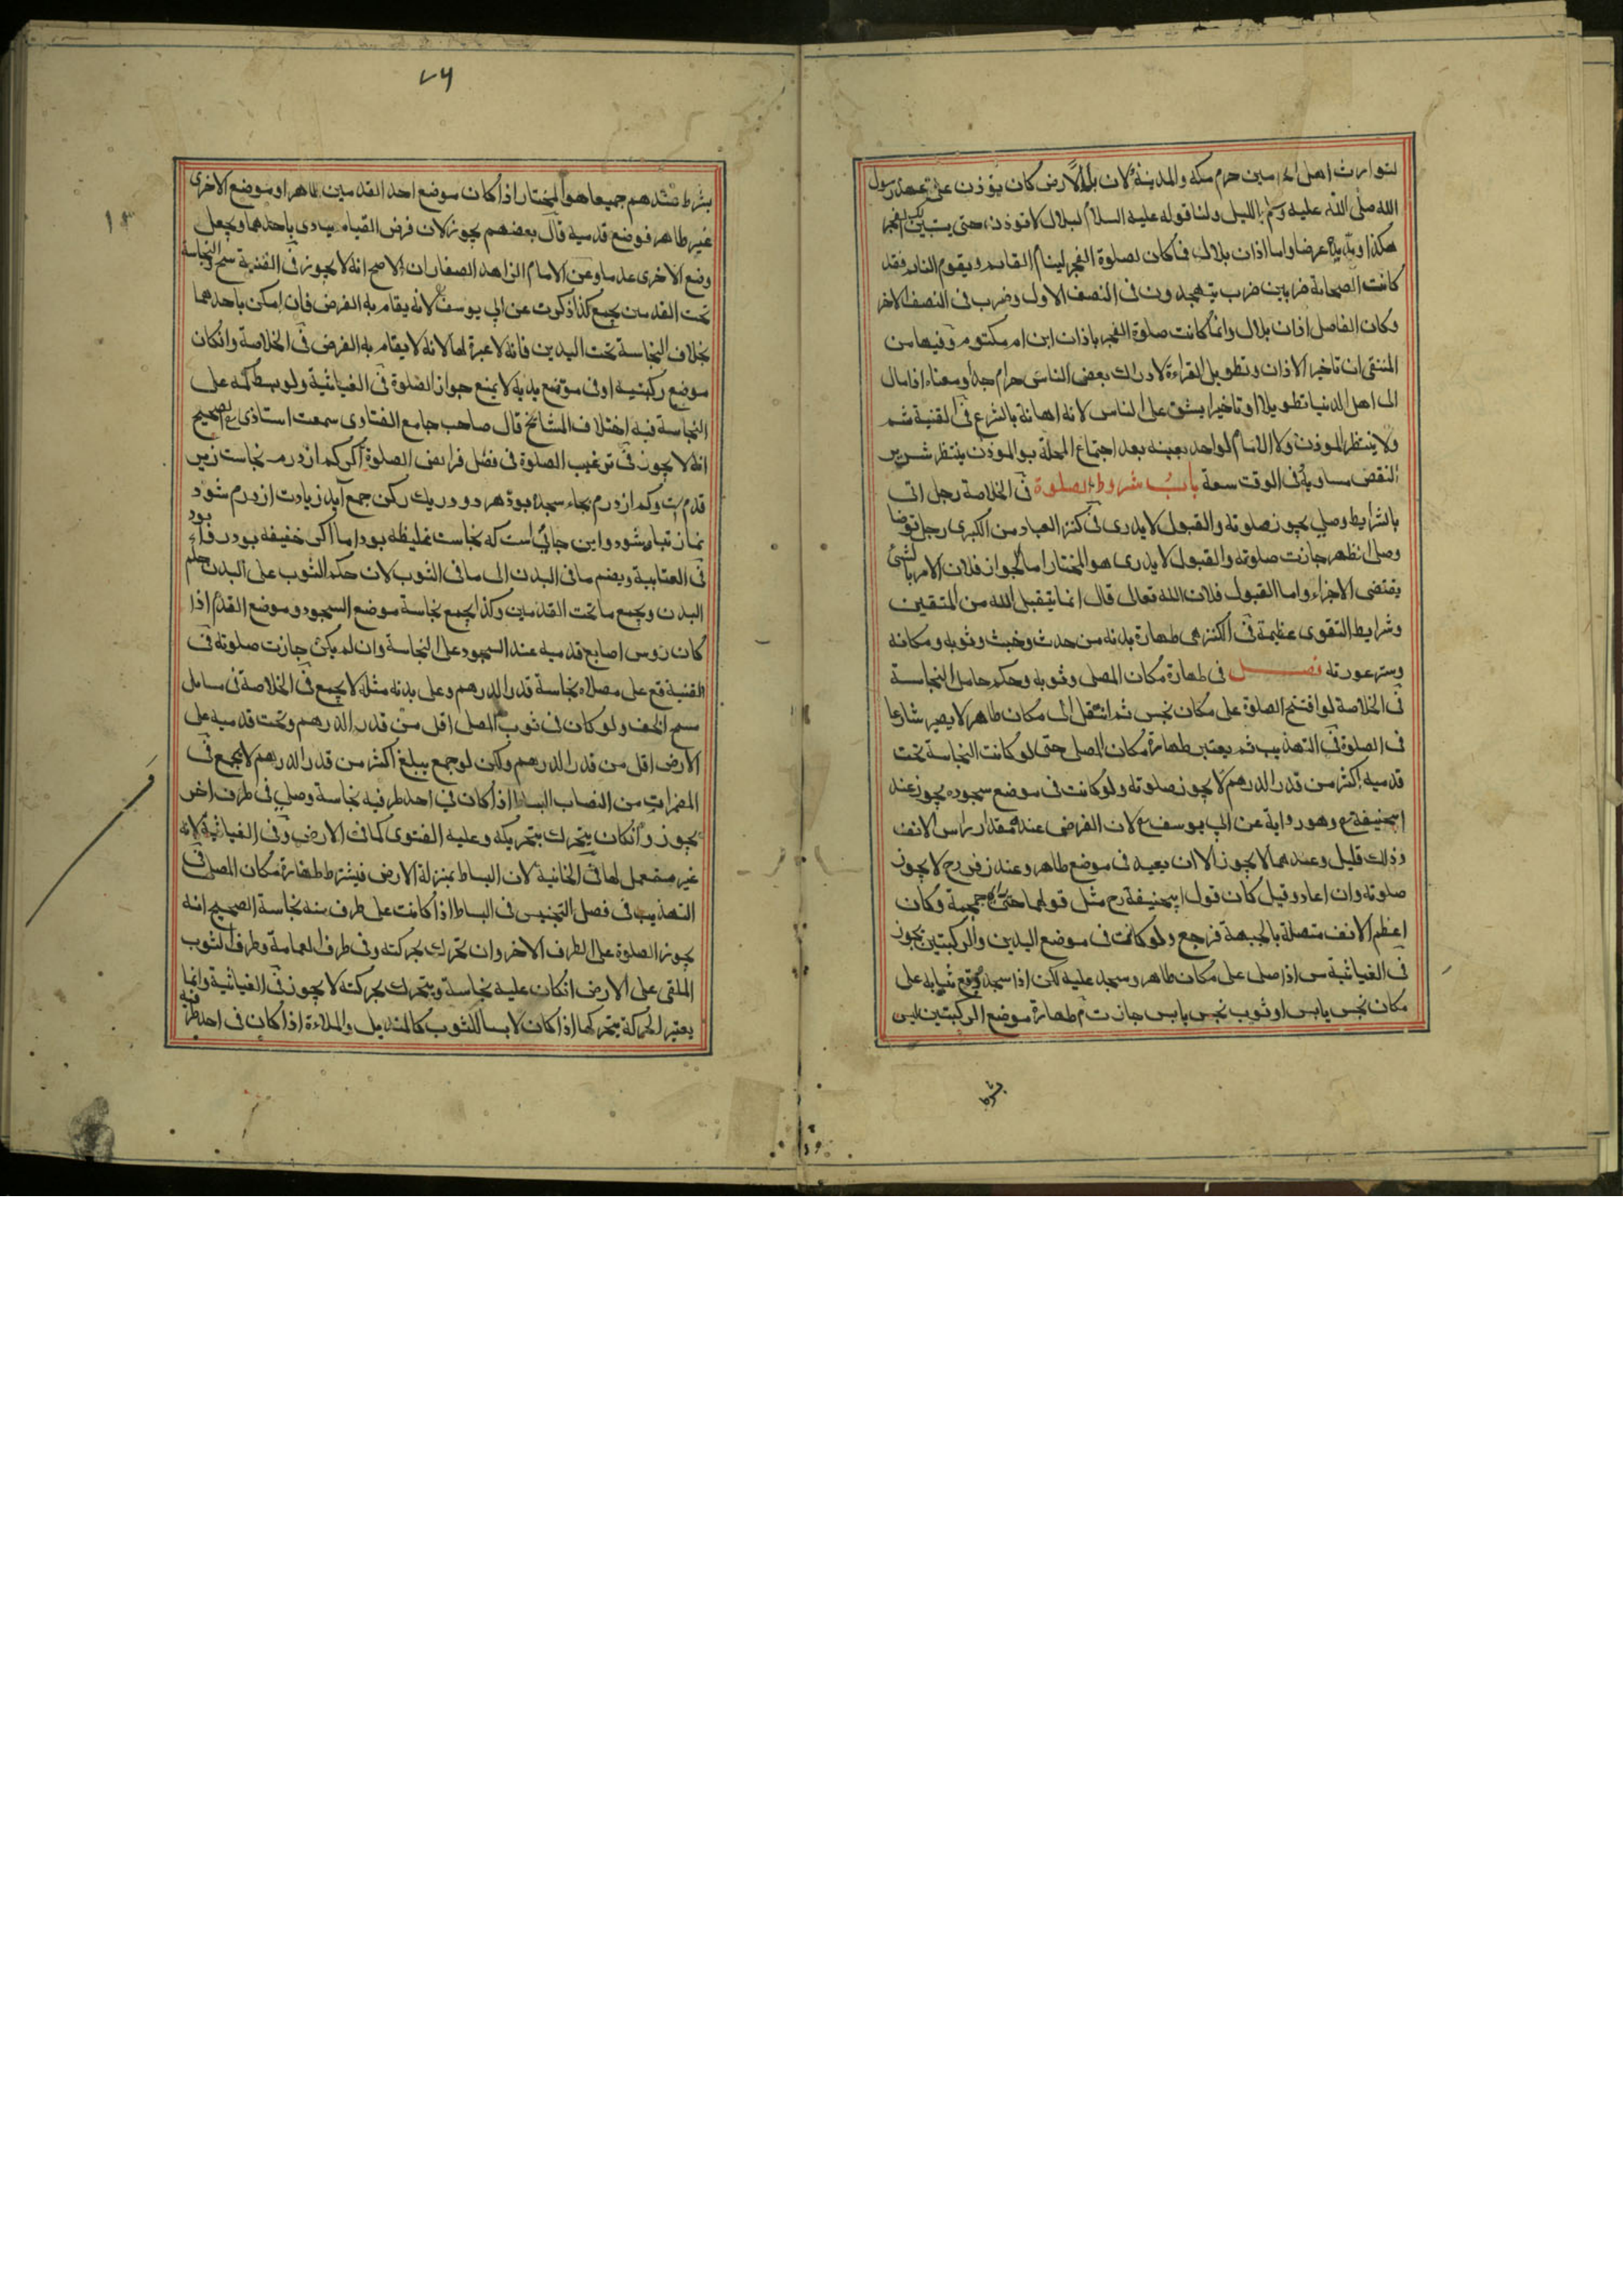 لتوارث اهل الحرمين حرم مكه والمدينة ولان بلالا رض كان يؤذن على عهد رسول
الله صلى الله عليه وسلم بالليل ولنا قوله عليه السلام لبلال لا تؤذن حتى يستبين لك الفجر
هكذا ومد يده عرضا واما اذان بلال فكان لصلوة الفجر لينام القائم ويقوم النائم فقد
كانت الصحابة ضربين ضرب يتهجدون فى النصف الاول وضرب فى النصف الاخر
وكان الفاصل اذان بلال وانما كانت صلوة الفجر باذان ابن ام مكتوم وفيها من
المنتقى ان تاخير الاذان وتطويل القراءة لادراك بعض الناس حرام هذا ومعناه اذا مال
الى اهل الدنيا تطويلا او تاخيرا يشق على الناس لانه اهانة بالشرع فى القنية شم
ولا ينتظر الموذن ولا الامام لواحد بعينه بعد اجتماع المحلة بو الموذن ينتظر شرير
النقض مساوية فى الوقت سعة باب شروط الصلوة فى الخلاصة رجل اتى
بالشرايط وصلي يجوز صلوته والقبول لا يدرى فى كنز العباد من الكبرى رجل توضا
وصلى الظهر جازت صلوته والقبول لا يدرى هو المختار اما الجواز فلان الامر بالشئ
يقتضى الاجزاء واما القبول فلان الله تعالى قال انما يتقبل الله من المتقين
وشرايط التقوى عظيمة فى الكنز هى طهارة بدنه من حدث وخبث وثوبه ومكانه
وستر عورته فصل فى طهارة مكان المصلى وثوبه وحكم حامل النجاسة
فى الخلاصة لو افتتح الصلوة على مكان نجس ثم انتقل الى مكان طاهر لا يصير شارعا
فى الصلوة فى التهذيب ثم يعتبر طهارة مكان المصلى حتى لو كانت النجاسة تحت
قدميه اكثر من قدر الدرهم لا يجوز صلوته ولو كانت فى موضع سجوده يجوز عند
ابيحنيفة رح وهو رواية عن ابى يوسف رح لان الفرض عنده مقدار راس الانف
وذلك قليل وعندهما لا يجوز الا ان يعيد فى موضع طاهر وعند زفر رح لا يجوز
صلوته وان اعاد وقيل كان قول ابيحنيفة رح مثل قولهما وكان
اعظم الانف متصلة بالجبهة فرجع ولو كانت فى موضع اليدين والركبتين يجوز
فى الغياثية س اذا صلى على مكان طاهر وسجد عليه لكن اذا سجد وقع ثيابه على
مكان نجس يابس او ثوب نجس يابس جازت م طهارة موضع الركبتين ليس
بشرط
٧٦
بشرط عندهم جميعا هو المختار اذا كان موضع احد القدمين طاهرا وموضع الاخرى
غير طاهر فوضع قدميه قال بعضهم يجوز لان فرض القيام يتادى باحدهما ويجعل
وضع الاخرى عدما وعن الامام الزاهد الصفار ان الاصح انه لا يجوز فى القنية سح والنجاسة
تحت القدمين يجمع كذا ذكرت عن ابى يوسف لانه يقام به الفرض فان امكن باحدهما
بخلاف النجاسة تحت اليدين فانه لا عبرة لها لانه لا يقام به الفرض فى الخلاصة وانكان
موضع ركبتيه او فى موضع يديه لا يمنع جواز الصلوة فى الغياثية ولو بسط كمه على
النجاسة فيه اختلاف المشائخ قال صاحب جامع الفتاوى سمعت استاذى رح الصحيح
انه لا يجوز فى ترغيب الصلوة فى فصل فرايض الصلوة اكر كم از درم نجاست زير
قدم ست وكم از درم بجاء سجده بود هر دو در يك ركن جمع آيد زيادت از درم شود
نماز تباه شود واين جائي است كه نجاست غليظه بود اما اكر خفيفه بود رواء بود
فى العتابية ويضم ما فى البدن الى ما فى الثوب لان حكم الثوب على البدن حكم
البدن ويجمع ما تحت القدمين وكذا يجمع نجاسة موضع السجود وموضع القدم اذا
كان روس اصابع قدميه عند السجود على النجاسة وان لم يكن جازت صلوته فى
القنية قع على مصلاه نجاسة قدر الدرهم وعلى بدنه مثله لا يجمع فى الخلاصة فى مسايل
مسح الخف ولو كان فى ثوب المصلى اقل من قدر الدرهم وتحت قدميه على
الارض اقل من قدر الدرهم ولكن لو جمع يبلغ اكثر من قدر الدرهم لا يجمع فى
المضمرات من النصاب البساط اذا كان في احد طرفيه نجاسة وصلي فى طرف اخر
يجوز وانكان يتحرك بتحريكه وعليه الفتوى كما فى الارض وفى الغياثية لانه
غير مستعمل لها فى الخانية لان البساط بمنزلة الارض فيشترط طهارة مكان المصلى فى
التهذيب فى فصل التجنيس فى البساط اذا كانت على طرف منه نجاسة الصحيح انه
يجوز الصلوة على الطرف الاخر وان تحرك بحركته وفى طرف العمامة وطرف الثوب
الملقى على الارض انكان عليه نجاسة ويتحرك بحركته لا يجوز فى الغياثية وانما
يعتبر الحركة بتحركها اذا كان لابسا للثوب كالمنديل والملاءة اذا كان فى احد طرفيه